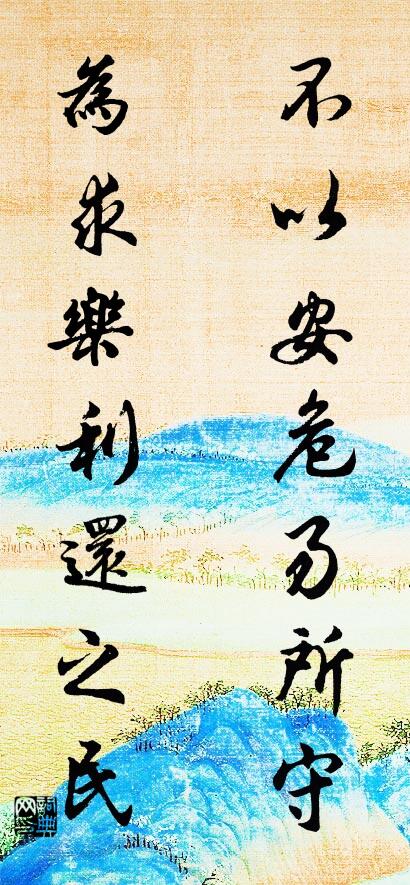 不以安危易所守
為求樂利還之民